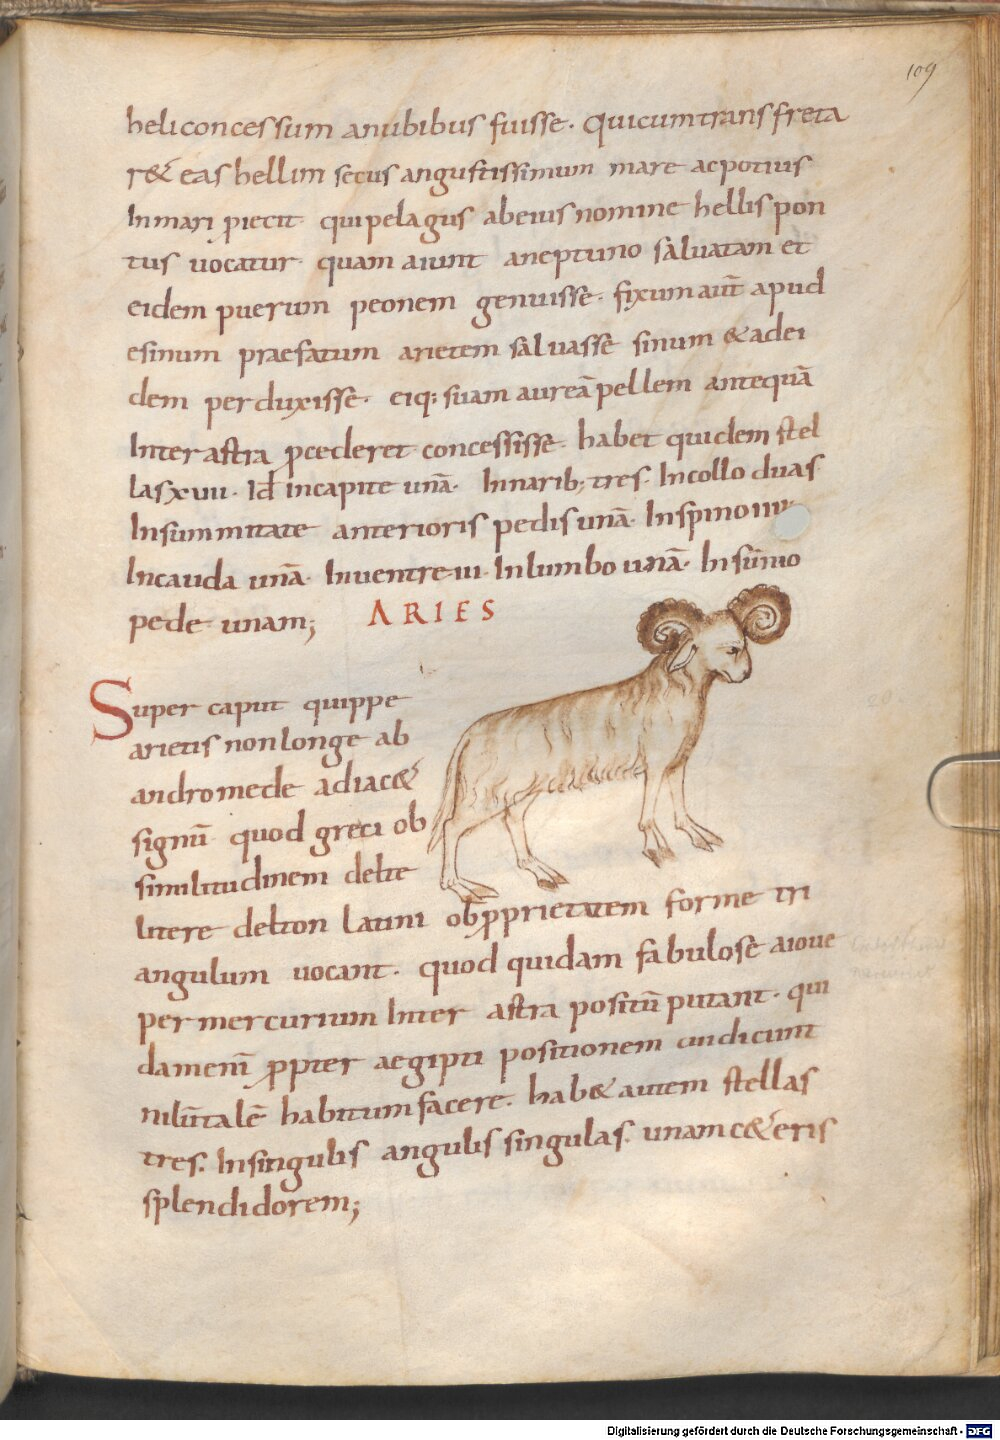 109
heli concessum a nubibus fuisse. Qui cum transfreta
r& eas hellim secus angustissimum mare ac potius
In mari piecit qui pelagus ab eius nomine hellis pon
tus uocatur. quam aiunt a neptuno saluatam et
eidem puerum peonem genuisse. fixum aut̄ apud
esinum praefatum arietem saluasse sinum & ad ei
dem perduxisse. eiq; suam aureā pellem antequā
Inter astra pcederet concessisse. habet quidem stel
las xuii. Id̄ in capite unā. In narib; tres. In collo duas
In summitate anterioris pedis unā. In spino iiii.
In cauda unā. In uentre iii. In lumbo unā. In sūmo
pede unam;
ARIES
Super caput quippe
arietis non longe ab
andromede adiac&
signū quod greci ob
similitudinem delte
litere delton latini ob pprietatem forme tri
angulum uocant. quod quidam fabulose a ioue
per mercurium Inter astra positū putant. qui
dam enī ppter aegipti positionem cū dicunt
nilūtalē habitum facere. hab& autem stellas
tres. In singulis angulis singulas. unam c&eris
splendidorem;
Digitalisierung gefördert durch die Deutsche Forschungsgemeinschaft - DFG